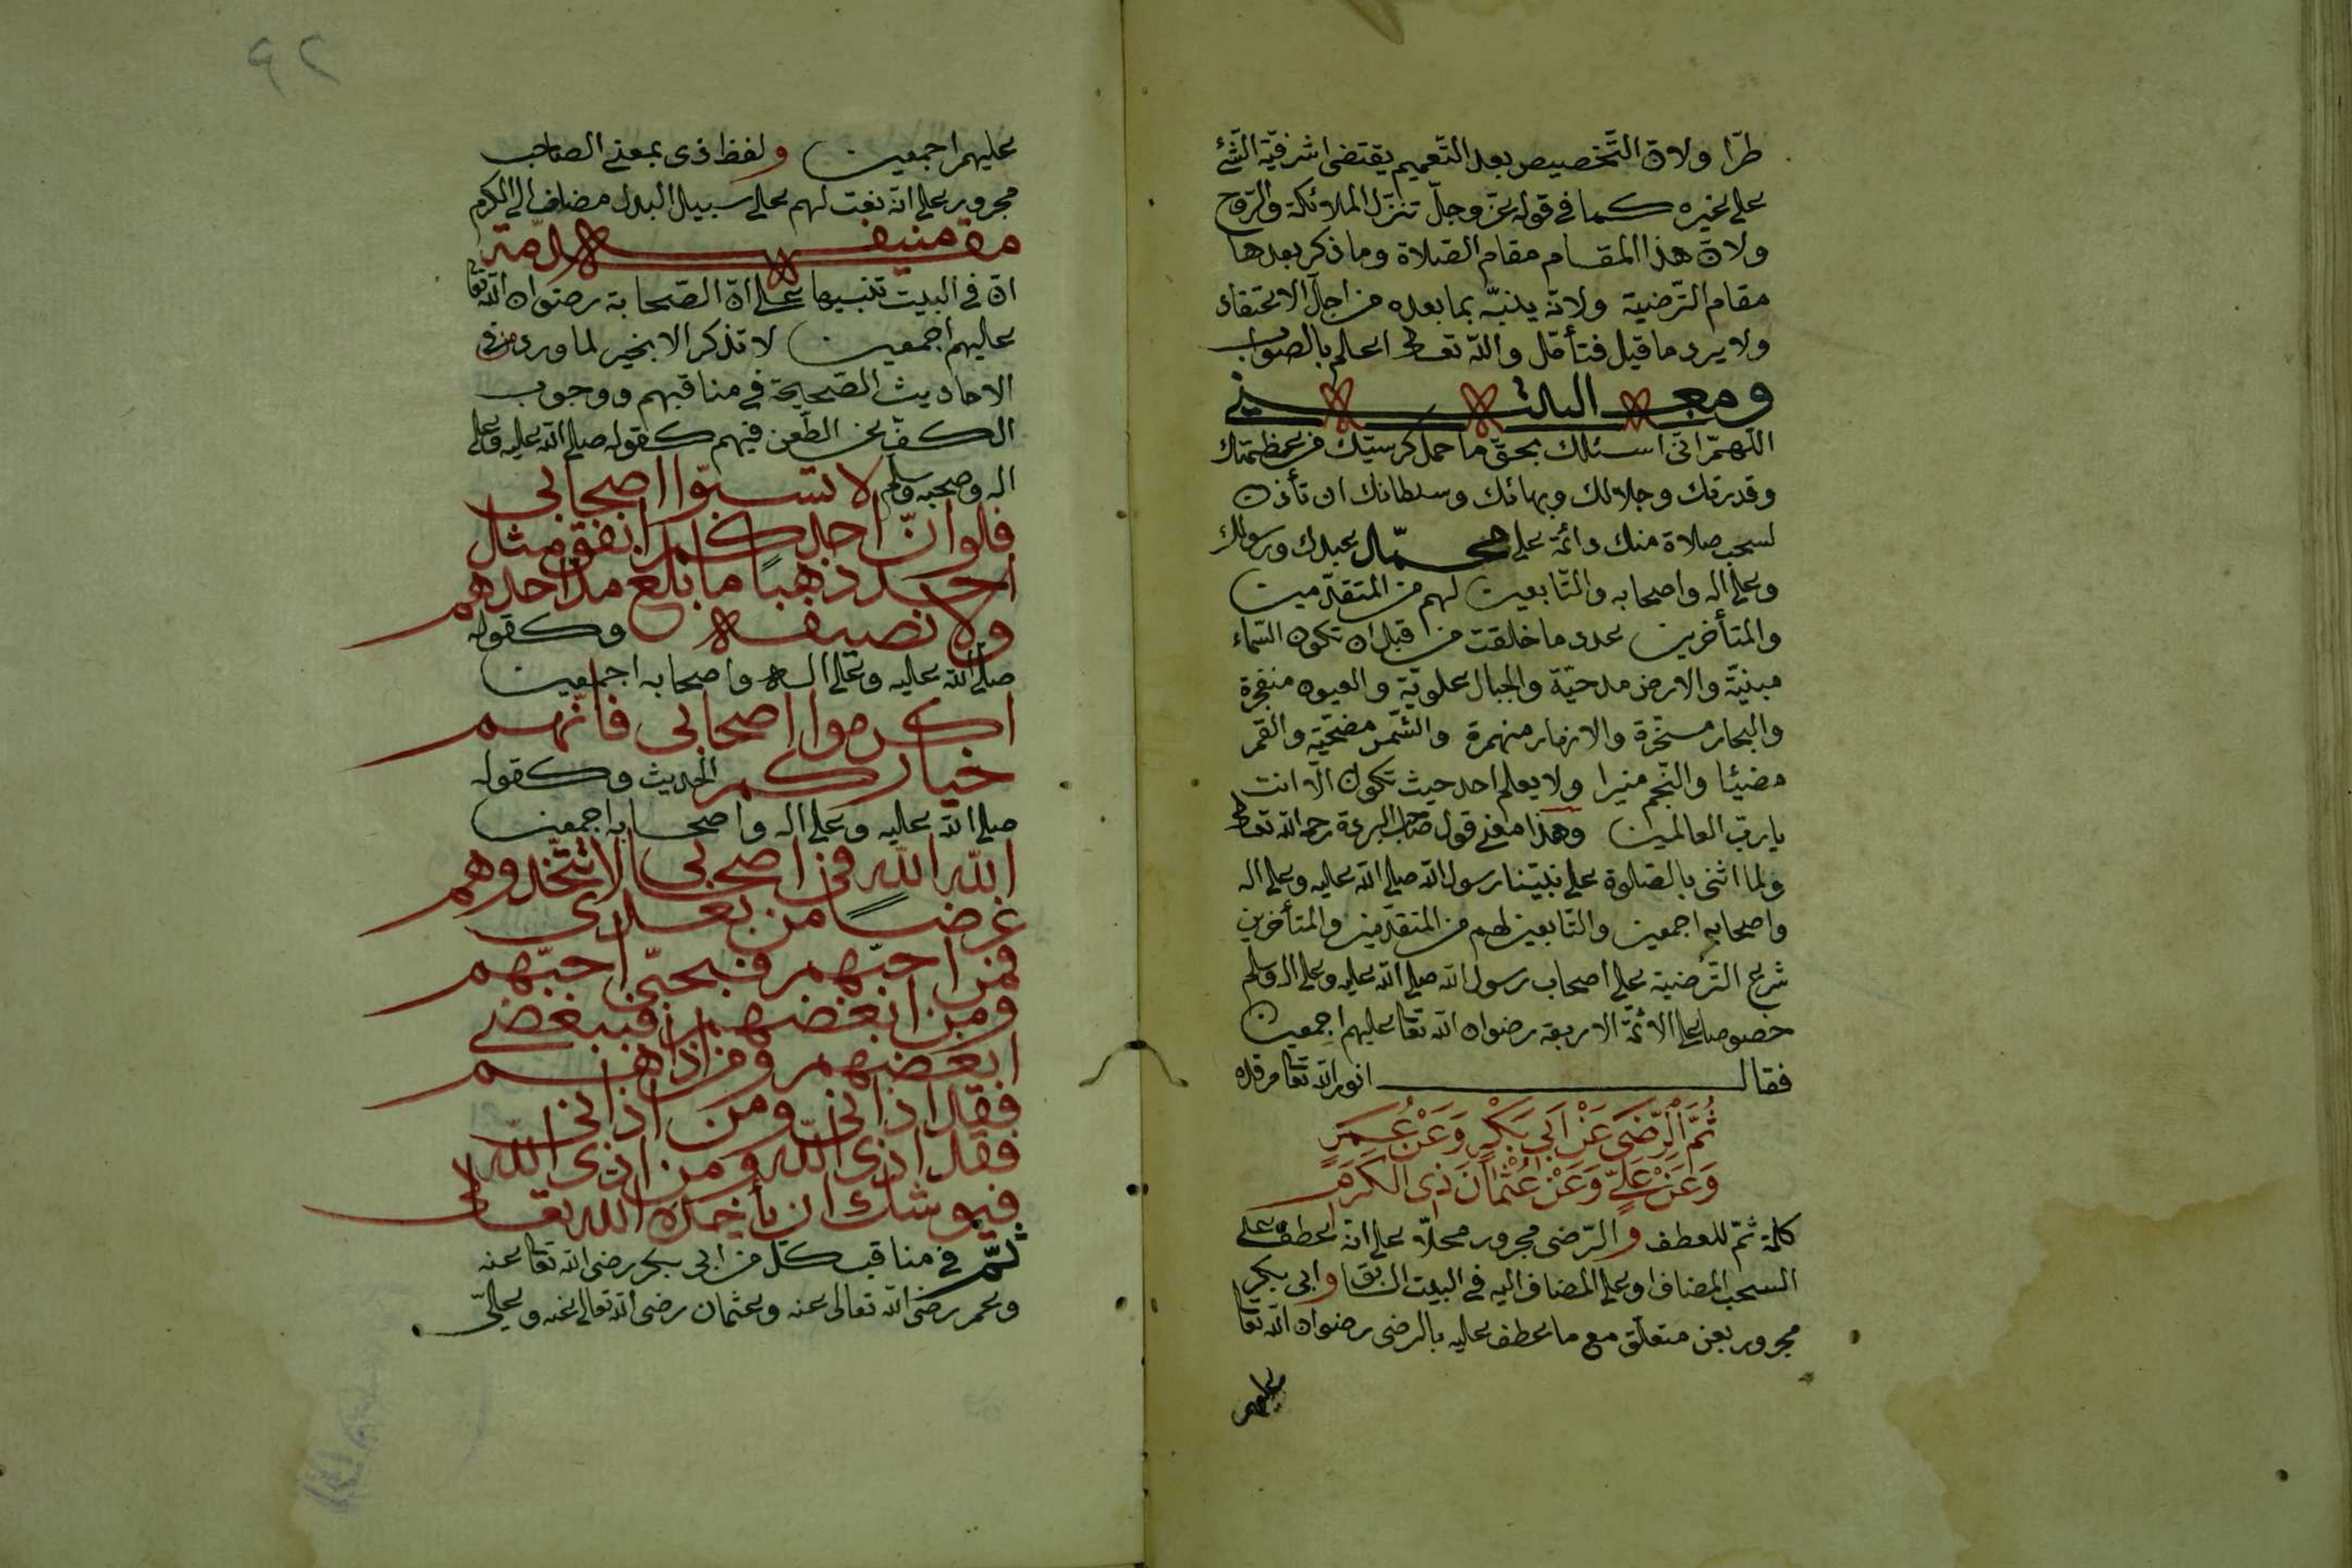 طرّا ولانّ التّخصيص بعد التّعميم يقتضى اشرفيّة الشّئ
على غيره كما فى قوله عزّ وجلّ تنزّل الملائكة والرّوح
ولانّ هذا المقام مقام الصّلاة وما ذكر بعدها
مقام التّرضية ولانّه ينبّه بما بعده من اجل الاعتقاد
ولا يرد ما قيل فتأمّل واللّه تعالى اعلم بالصّواب
ومعنى البيتين
اللّهمّ انّى اسئلك بحقّ ما حمل كرسيّك من عظمتك
وقدرتك وجلالك وبهائك وسلطانك ان تأذن
لسحب صلاة منك دائمة على محمّد عبدك ورسولك
وعلى اله واصحابه والتّابعين لهم من المتقدّمين
والمتأخرين عدد ما خلقت من قبل ان تكون السّماء
مبنيّة والارض مدحيّة والجبال علويّة والعيون منفجرة
والبحار مسخّرة والانهار منهمرة والشّمس مضحيّة والقمر
مضيئا والنّجم منيرا ولا يعلم احد حيث تكون الّا انت
يا ربّ العالمين وهذا معنى قول صاحب البرءة رحمه اللّه تعالى
ولما اثنى بالصّلوة على نبيّنا رسول اللّه صلى اللّه عليه وعلى اله
واصحابه اجمعين والتّابعين لهم من المتقدّمين والمتأخرين
شرع التّرضية على اصحاب رسول اللّه صلى اللّه عليه وعلى اله وسلم
خصوصا على الائمّة الاربعة رضوان اللّه تعا عليهم اجمعين
فقال انور اللّه تعا مرقده
ثُمَّ الرِّضَى عَنْ اَبِى بَكْرٍ وَعَنْ عُمَرٍ
وَعَنْ عَلِىٍّ وَعَنْ عُثْمَانَ ذِى الْكَرَمِ
كلمة ثمّ للعطف والرّضى مجرور محلّا على انّه عطف على
السحب المضاف او على المضاف اليه فى البيت السّابق وابى بكر
مجرور بعن متعلّق مع ما عطف عليه بالرضى رضوان اللّه تعا
عليهم
٩٢
عليهم اجمعين ولفظ ذى بمعنى الصاحب
مجرور على انّه نعت لهم على سبيل البدل مضاف الى الكرم
انّ فى البيت تنبيها على انّ الصّحابة رضوان اللّه تعا
عليهم اجمعين لا تذكر الا بخير لما ورد من فى
الاحاديث الصّحيحة فى مناقبهم ووجوب
الكفّ عن الطّعن فيهم كقوله صلى اللّه عليه وعلى
اله وصحبه وسلم لا تسبّوا اصحابى
فلو انّ احدكم انفق مثل
احد ذهبًا ما بلغ مد احدهم
ولا نصيفه وكقوله
صلى اللّه عليه وعلى اله واصحابه اجمعين
اكرموا اصحابى فانّهم
خياركم الحديث وكقوله
صلى اللّه عليه وعلى اله واصحابه اجمعين
اللّه اللّه فى اصحابى لا تتّخذوهم
غرضًا من بعدى
فمن احبّهم فبحبّى احبّهم
ومن ابغضهم فببغضى
ابغضهم ومن اذاهم
فقد اذانى ومن اذانى
فقد اذى اللّه ومن اذى اللّه
فيوشك ان يأخذه اللّه تعالى
ثمّ فى مناقب كلّ من ابى بكر رضى اللّه تعا عنه
وعمر رضى اللّه تعالى عنه وعثمان رضى اللّه تعالى عنه وعلىّ